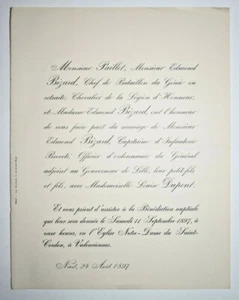 Monsieur Paillet, Monsieur Edmond
Bizard, Chef de Bataillon du Génie en
retraite, Chevalier de la Légion d'Honneur,
et Madame Edmond Bizard, ont l'honneur
de vous faire part du mariage de Monsieur
Edmond Bizard, Capitaine d'Infanterie
Breveté, Officier d'ordonnance du Général
adjoint au Gouverneur de Lille, leur petit-fils
et fils, avec Mademoiselle Louise Dupont.
Et vous prient d'assister à la Bénédiction nuptiale
qui leur sera donnée le Samedi 11 Septembre 1897, à
onze heures, en l'Eglise Notre-Dame du Saint-
Cordon, à Valenciennes.
24 Août 1897